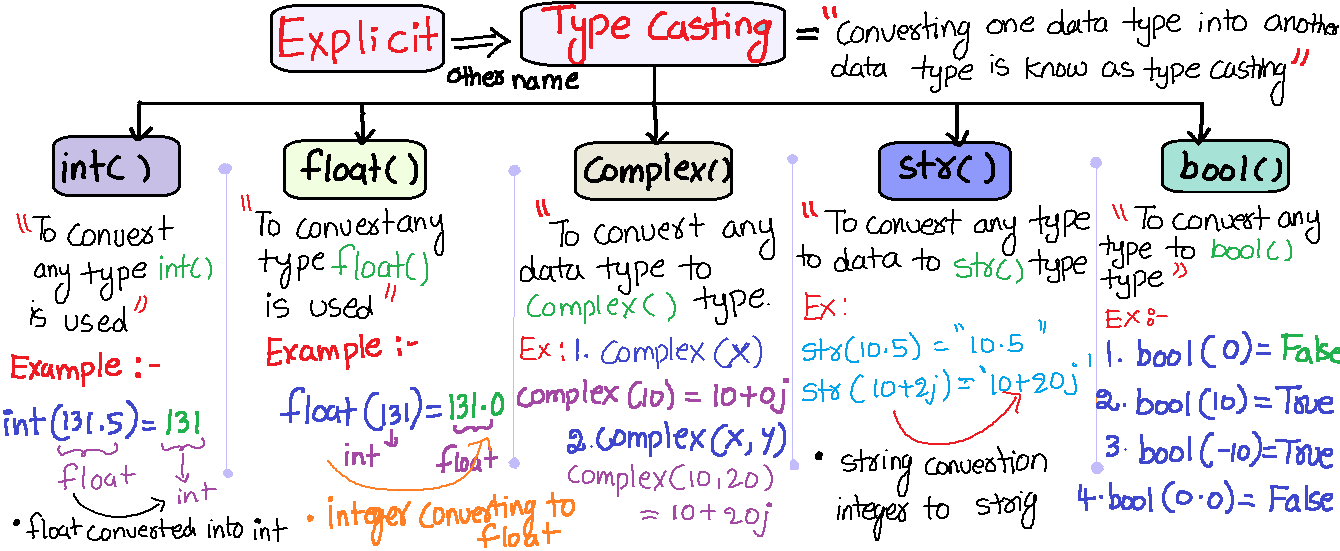 Explicit
other name
Type Casting
= "Converting one data type into another
data type is know as type casting"
int()
"To convert
any type int()
is used"
Example :-
int(131.5) = 131
float
int
• float converted into int
float()
"To convert any
type float()
is used"
Example :-
float(131) = 131.0
int
float
• integer converting to
float
Complex()
"To convert any
data type to
Complex() type.
Ex: 1. Complex (x)
complex (10) = 10+0j
2. Complex(x, y)
Complex(10,20)
= 10 + 20j
str()
"To convert any type
to data to str() type
Ex:
str(10.5) = "10.5"
str (10+2j) = '10+20j'
• string convertion
integer to strig
bool()
"To convert any
type to bool()
type"
Ex:-
1. bool(0) = False
2. bool(10) = True
3. bool(-10) = True
4. bool(0.0) = False